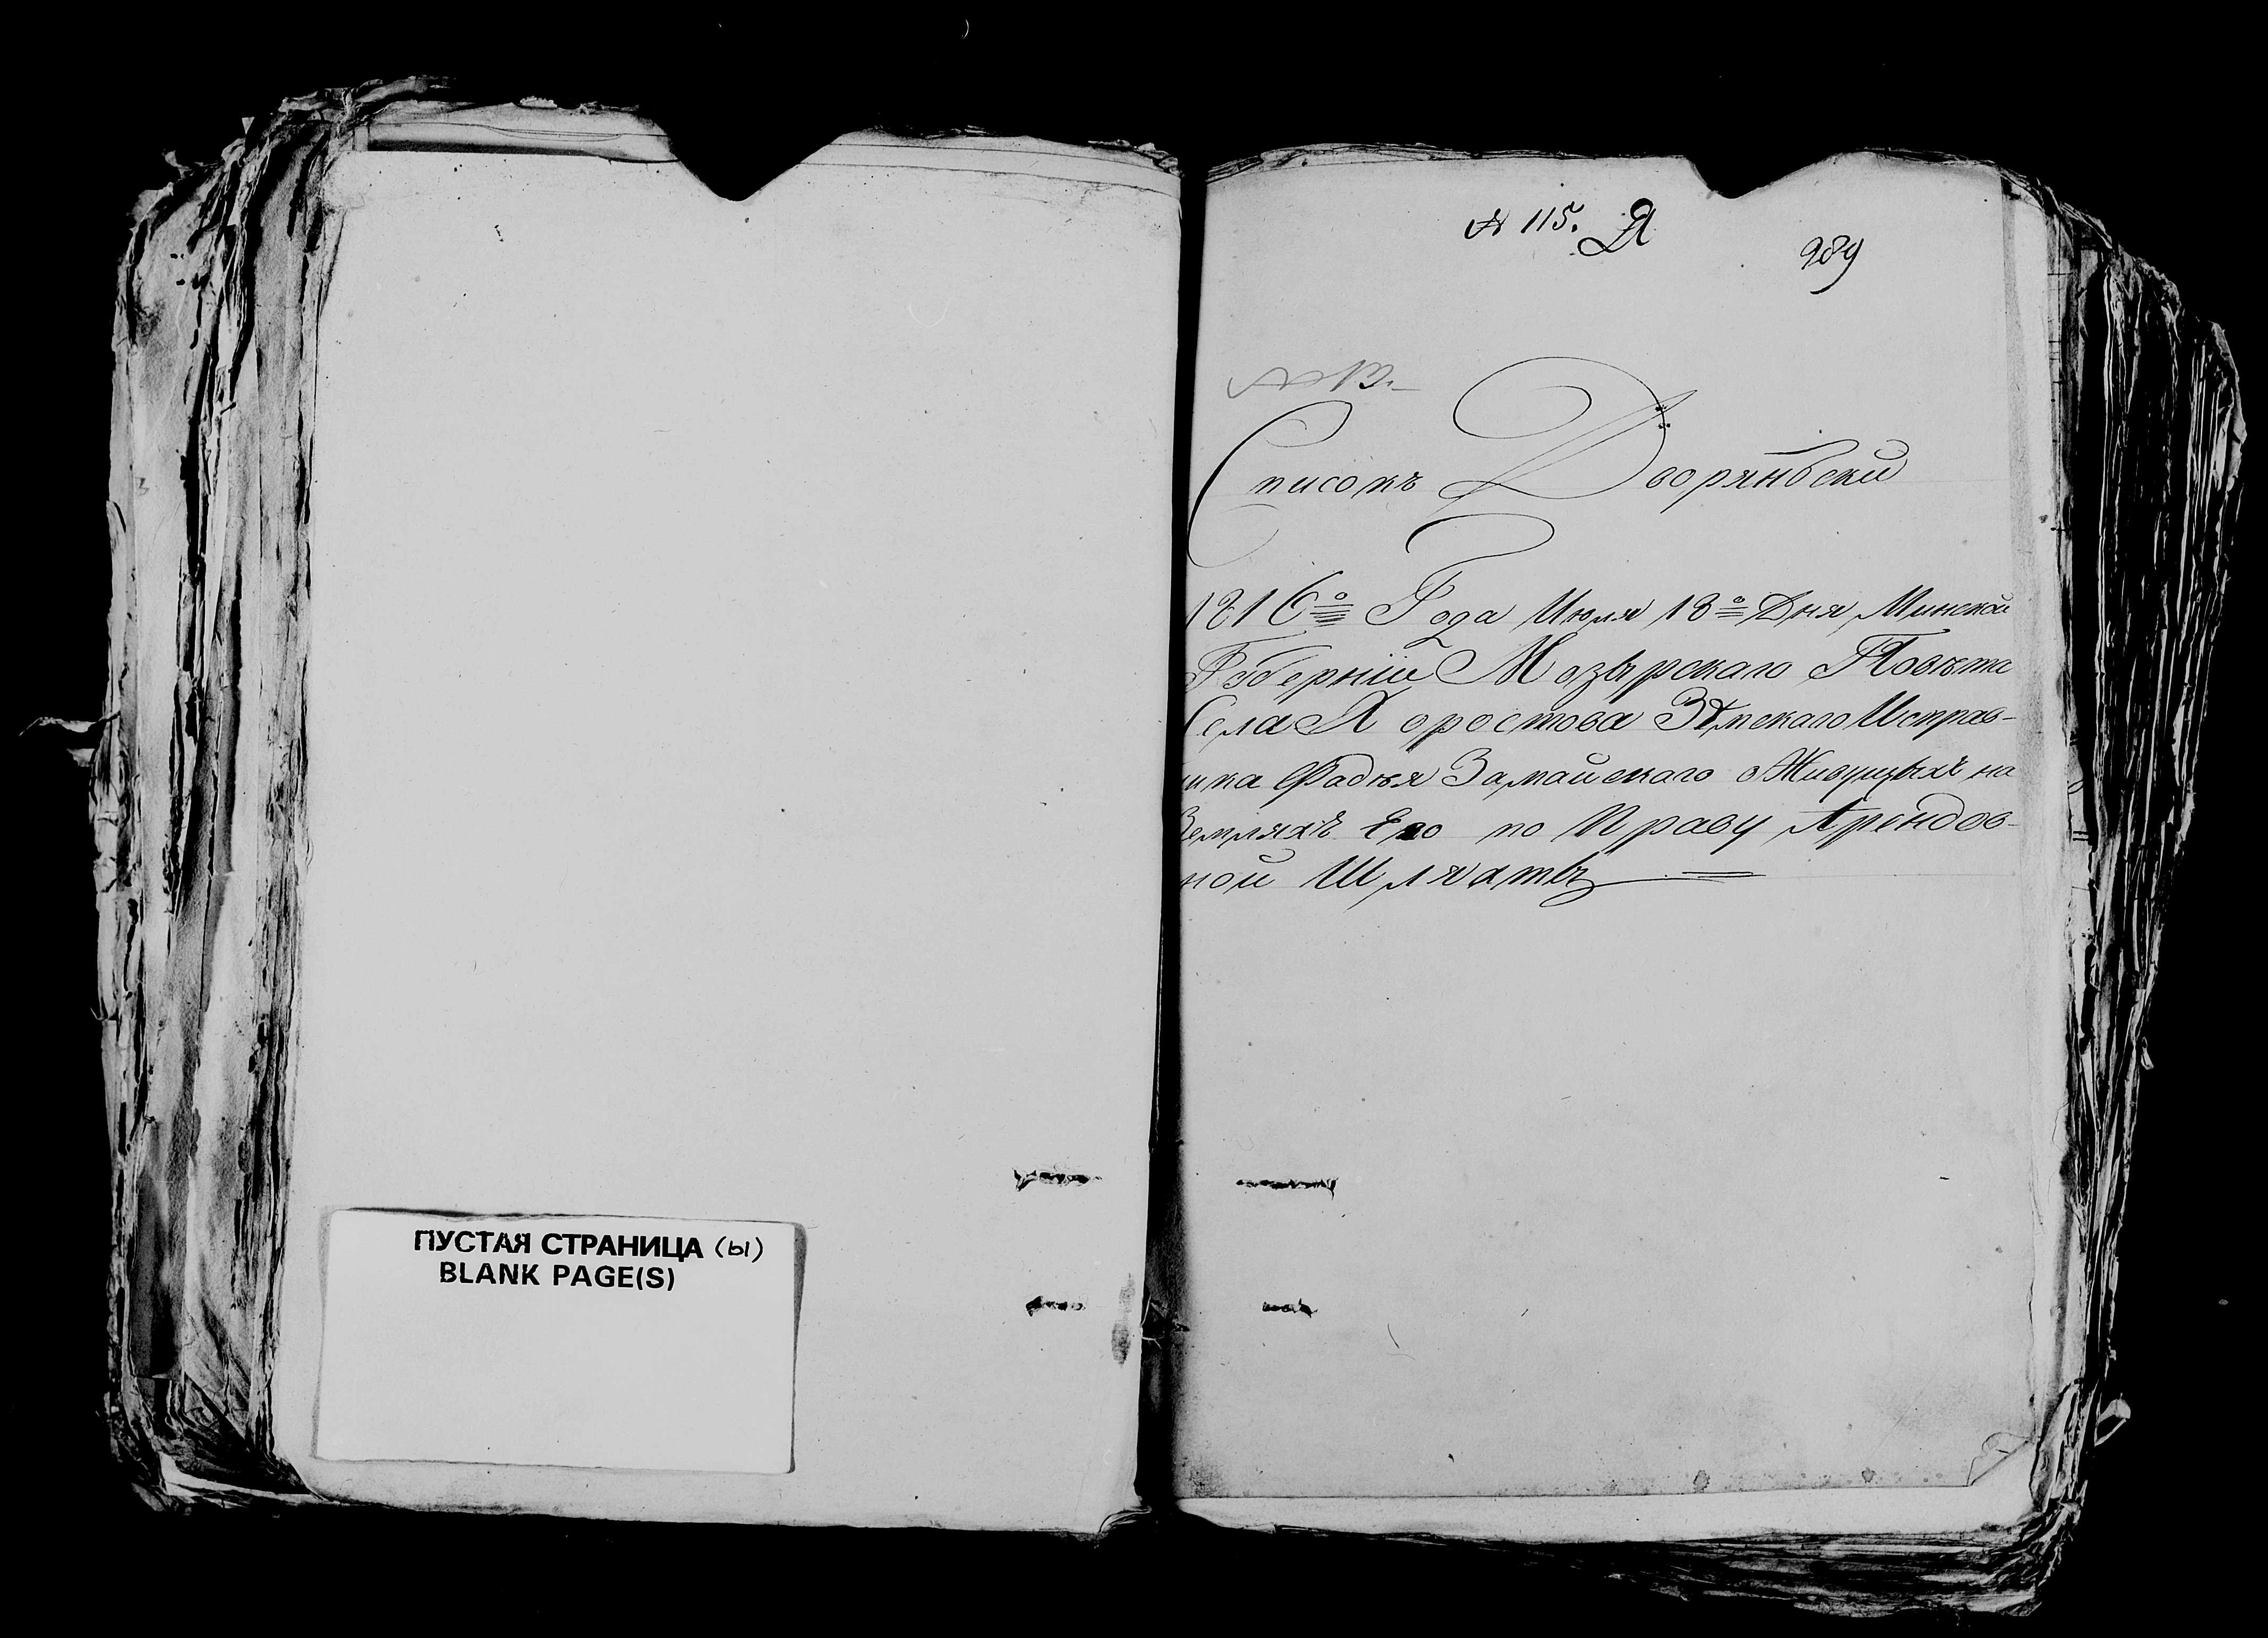 ПУСТАЯ СТРАНИЦА (ы)
BLANK PAGE(S)
№ 115. Д
989
№ 13.
Списокъ Дворянъски
1816º Года Июля 13º Дня Минской
Губерніи Мозырскаго Повѣта
Села Хоростова Земскаго Исправ-
ика Фадѣя Замайскаго Живущыхъ на
Земляхъ Его по Праву Арендов-
ной Шляхты